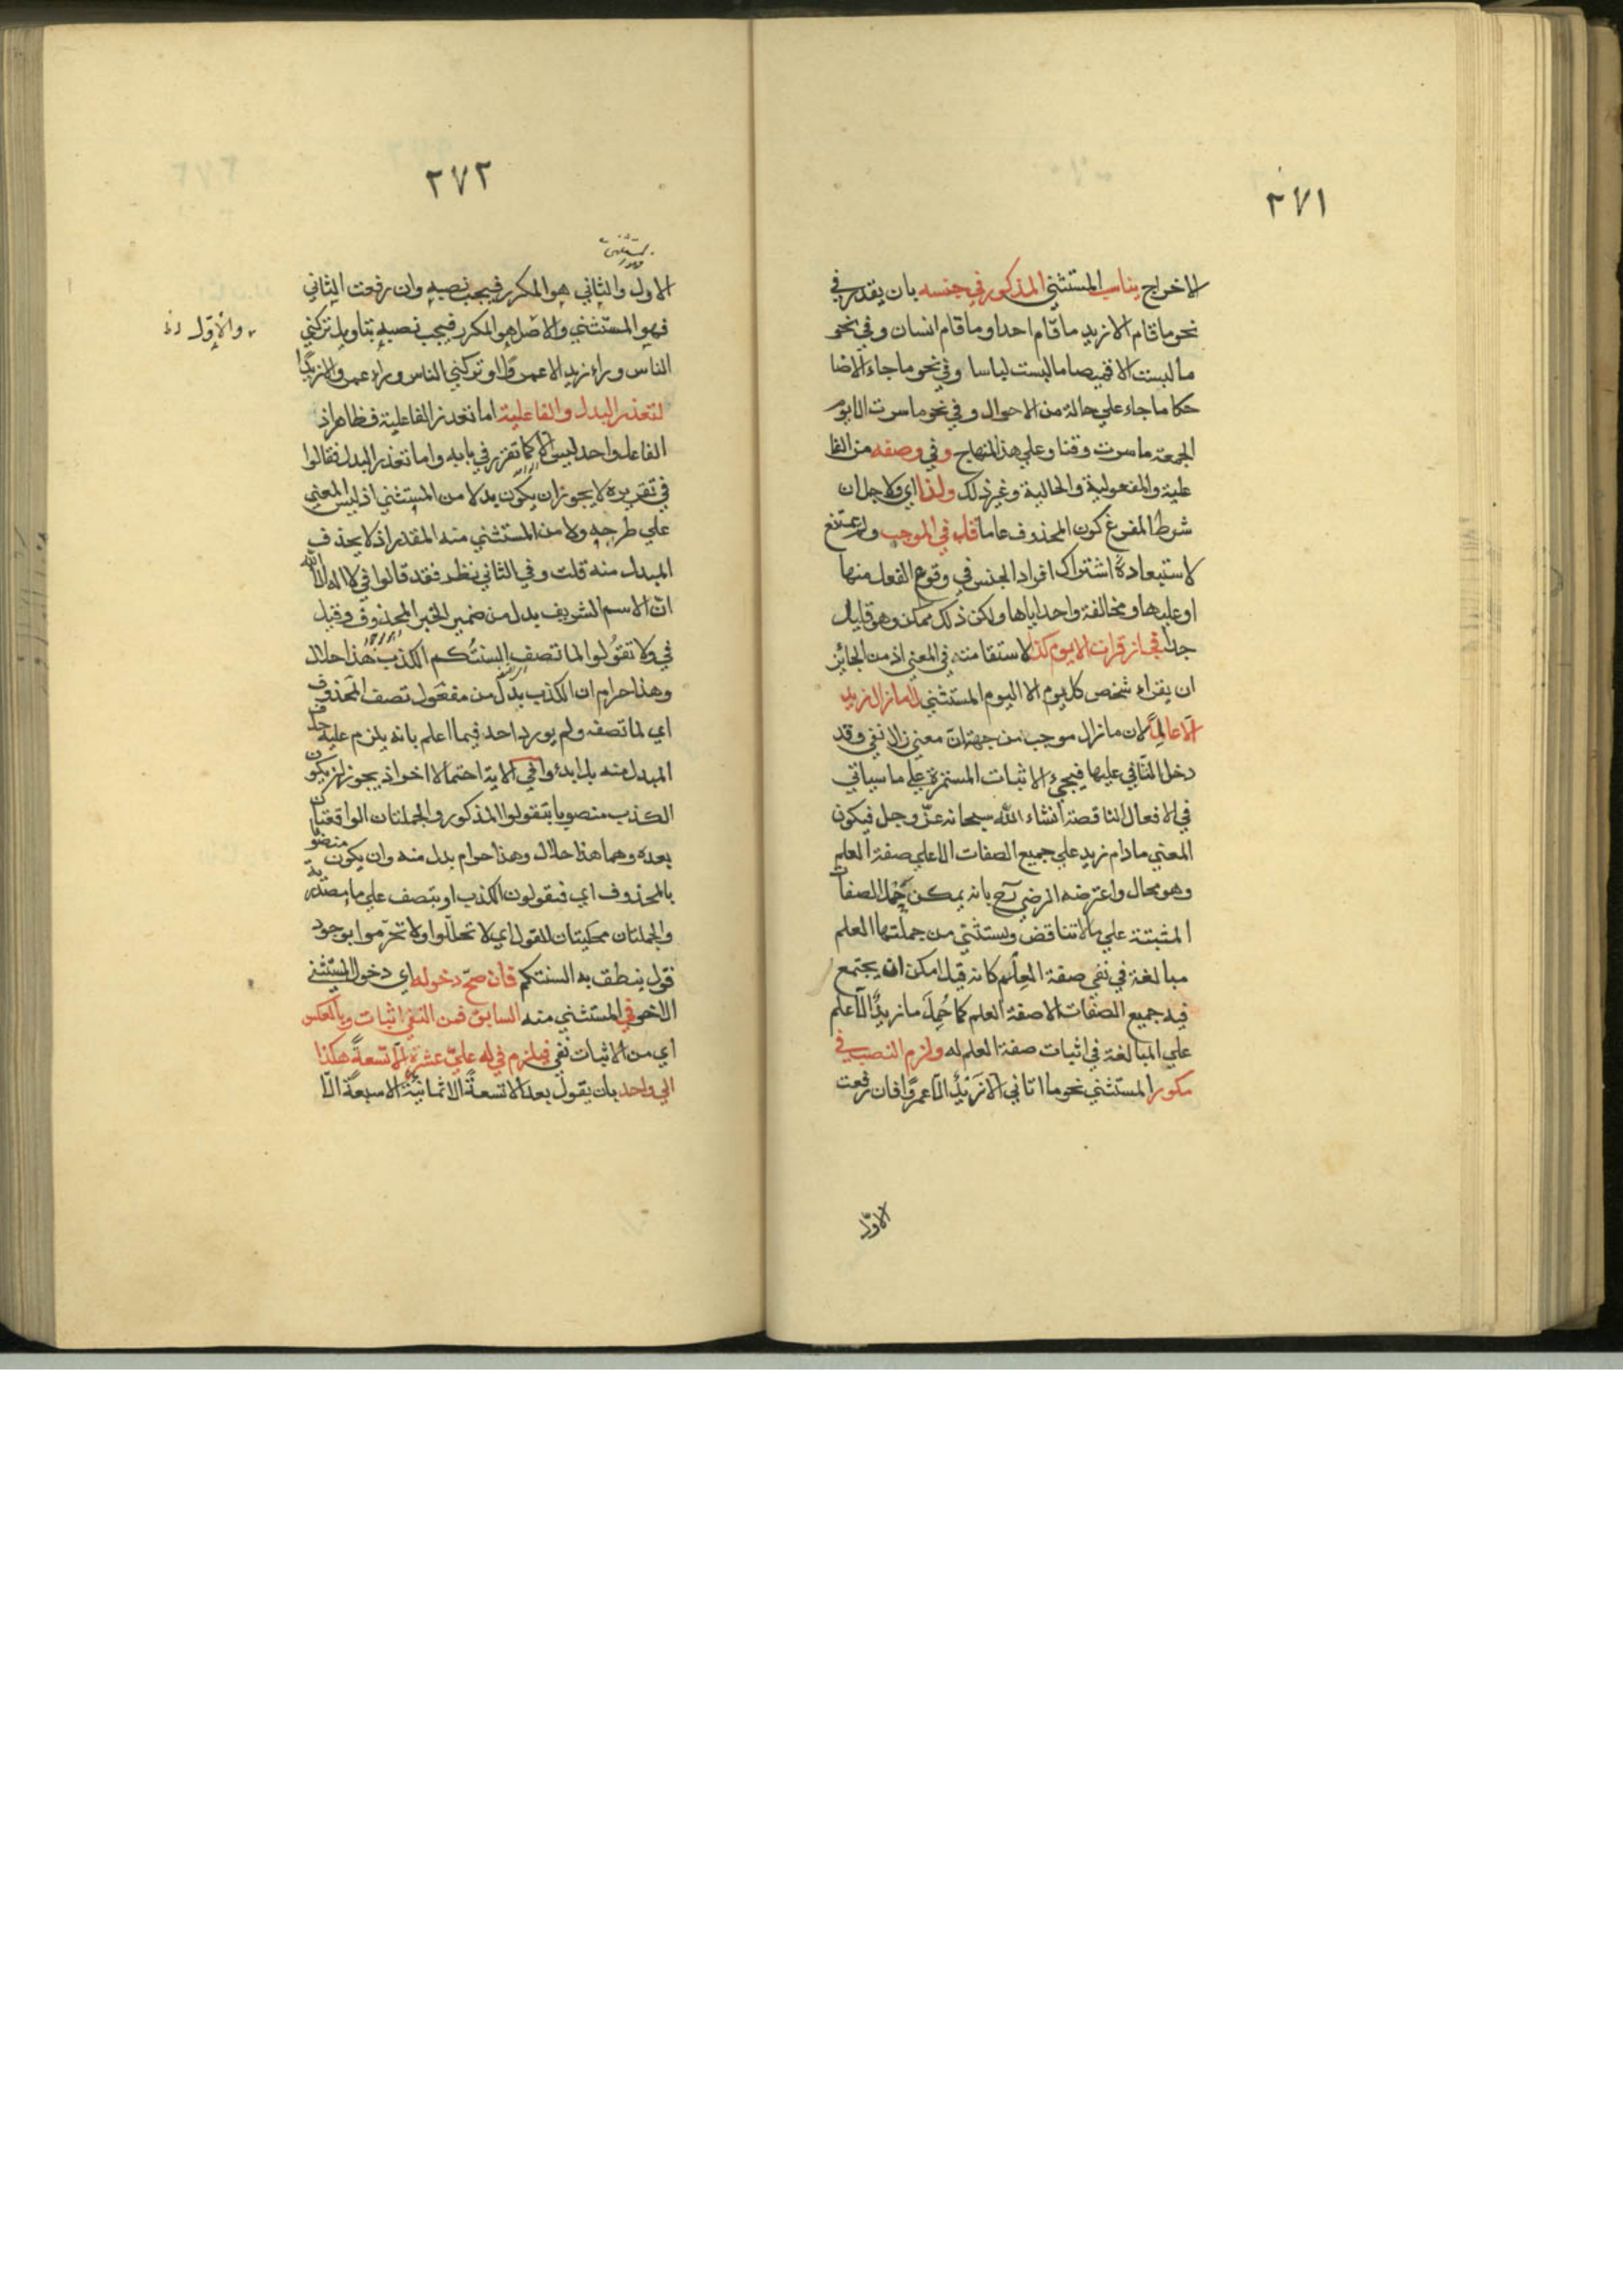 ٢٧١
الاخراج يناسب المستثني المذكور في جنسه بان يقدر في
نحو ما قام الا زيد ما قام احد او ما قام انسان وفي نحو
ما لبست الا قميصا ما لبست لباسا وفي نحو ما جاء الا ضا
حكا ما جاء علي حالة من الاحوال وفي نحو ما سرت الا يوم
الجمعة ما سرت وقتا وعلي هذا المنهاج وفي وصفه من الفا
علية والمفعولية والحالية وغير ذلك ولذا اي ولاجل ان
شرط المفرغ كون المحذوف عاما قل في الموجب ولم يمتنع
لاستبعادة اشتراك افراد الجنس في وقوع الفعل منها
او عليها ومخالفة واحد اياها ولكن ذلك ممكن وهو قليل
جدا فجاز قرات الا يوم كذا لاستقامته في المعني اذ من الجائز
ان يقراء شخص كل يوم الا اليوم المستثني لا ما زال زيد
الا عالما لان ما زال موجب من جهة ان معني زال نفي وقد
دخل النافي عليها فيجيء الاثبات المستمرة علي ما سياتي
في الافعال الناقصة انشاء الله سبحانه عز وجل فيكون
المعني ما دام زيد علي جميع الصفات الا علي صفة العلم
وهو محال واعترضه الرضي رح بانه يمكن حمل الصفات
المثبتة علي ما لا تتناقض ويستثني من جملتها العلم
مبالغة في نفي صفة العلم كانه قيل امكن ان يجتمع
فيه جميع الصفات الا صفة العلم كما حُمِلَ ما زيدٌ الّا عالم
علي المبالغة في اثبات صفة العلم له ولزم النصب في
مكور المستثني نحو ما اتاني الا زَيْدٌ الّا عمرًوا فان رفعت
الاوّل
٢٧٢
الاول والثاني هو المكرر فيجب نصبه وان رفعت الثاني
فهو المستثني والاصل هو المكرر فيجب نصبه بتاويل تركني
والاوّل
الناس وراء زيد الا عمروًا او تركني الناس وراء عمرو الا زيدًا
لتعذر البدل والفاعلية اما تعذر الفاعلية فظاهر اذ
الفاعل واحد ليس الا كما تقرر في بابه واما تعذر البدل فقالوا
في تقريره لا يجوز ان يكون بدلا من المستثني اذ ليس المعني
علي طرحه ولا من المستثني منه المقدر اذ لا يحذف
المبدل منه قلت وفي الثاني نظر فقد قالوا في لا اله الا الله
ان الاسم الشريف بدل من ضمير الخبر المحذوف وقيل
في ولا تقُولوا لما تصف السنتكم الكذب هذا حلال
وهذا حرام ان الكذب بدل من مفعول تصف المحذوف
اي لما تصفه ولم يورد احد فيما اعلم بانه يلزم عليه حذف
المبدل منه بل ابدءوا في الاية احتمالا اخر اذ يجوز ان يكون
الكذب منصوبا بتقولوا المذكور والجملتان الواقعتان
بعده وهما هذا حلال وهذا حرام بدل منه وان يكون منصوبا
بالمحذوف اي فتقولون الكذب او بتصف علي ما مصدرية
والجملتان محكيتان للقول اي لا تحللّوا ولا تحرّموا بوجود
قول ينطق به السنتكم فان صحّ دخوله اي دخول المستثني
الاخر في المستثني منه السابق فمن النفي اثبات وبالعكس
اي من الاثبات نفي فيلزم في له عليّ عشرة الّا تسعةً هكذا
الي واحد بان يقول بعد الا تسعةً الا ثمانيةً الا سبعةً الّا